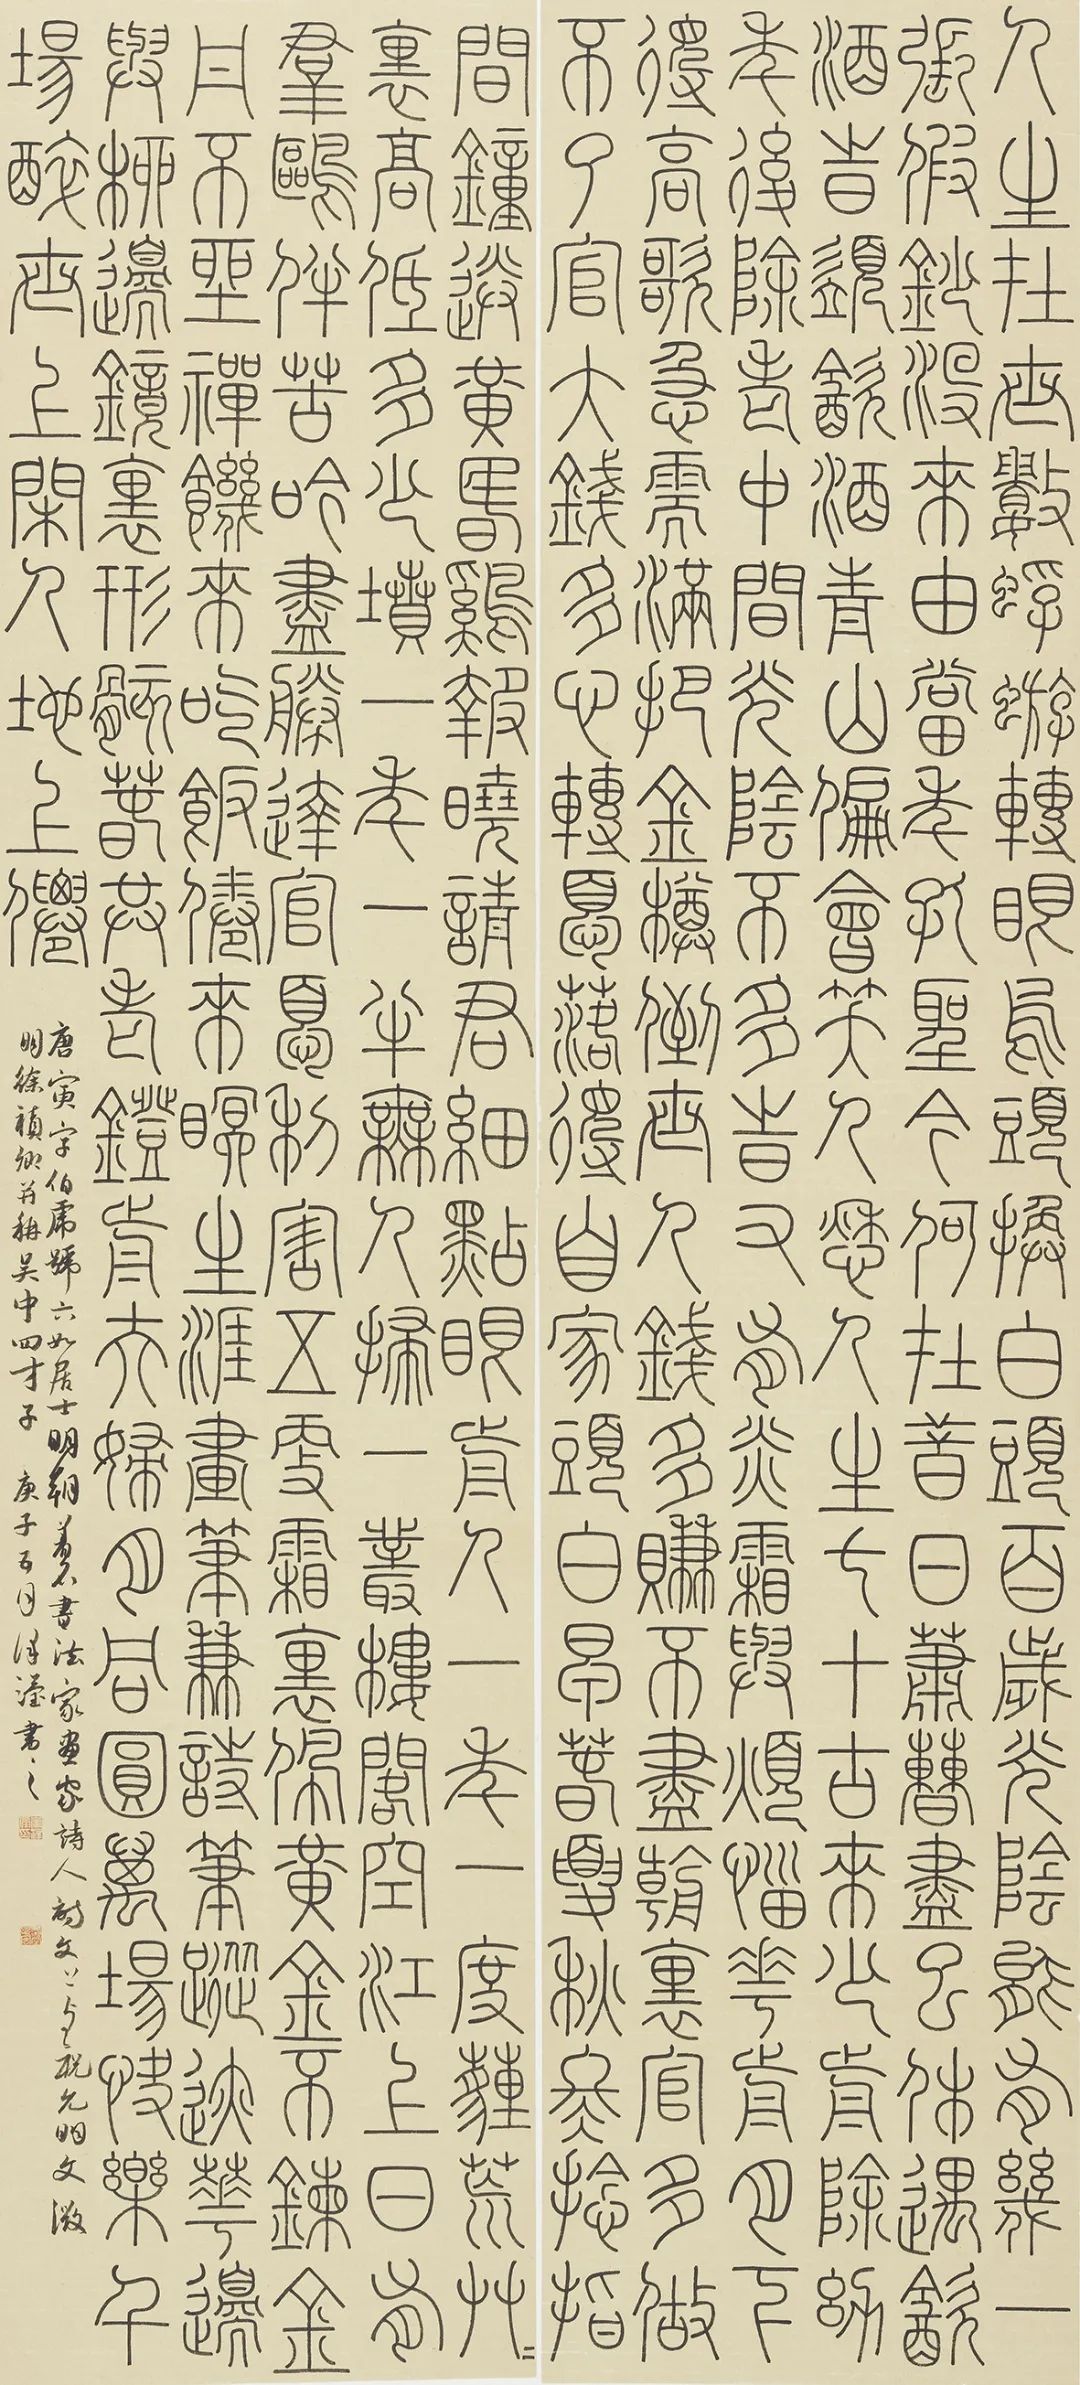 人生在世數蜉蝣轉眼烏頭換白頭百歲光陰能有幾一
張假鈔沒來由當年孔聖今何在昔日蕭曹盡已休遇飲
酒時須飲酒青山偏會笑人愁人生七十古來少前除幼
年後除老中間光陰不多時又有炎霜與煩惱花前月下
得高歌急需滿把金樽倒世人錢多賺不盡朝裏官多做
不了官大錢多心轉憂落得自家頭白早春夏秋冬捻指
間鐘送黃昏雞報曉請君細點眼前人一年一度薶荒艸
裏高低多少墳一年一半無人掃一叢樓閣空江上日有
羣鷗伴苦吟盡勝達官憂利害五更霜裏佩黃金不鍊金
丹不坐禪饑來吃飯倦來眠生涯畫筆兼詩筆蹤迹花邊
與柳邊鏡裏形骸春共老鐙前夫婦月同圓萬場快樂千
場醉世上閑人地上僊
唐寅字伯虎號六如居士明朝著名書法家畫家詩人詩文上與祝允明文徵
明徐禎卿並稱吳中四才子 庚子 月 書之